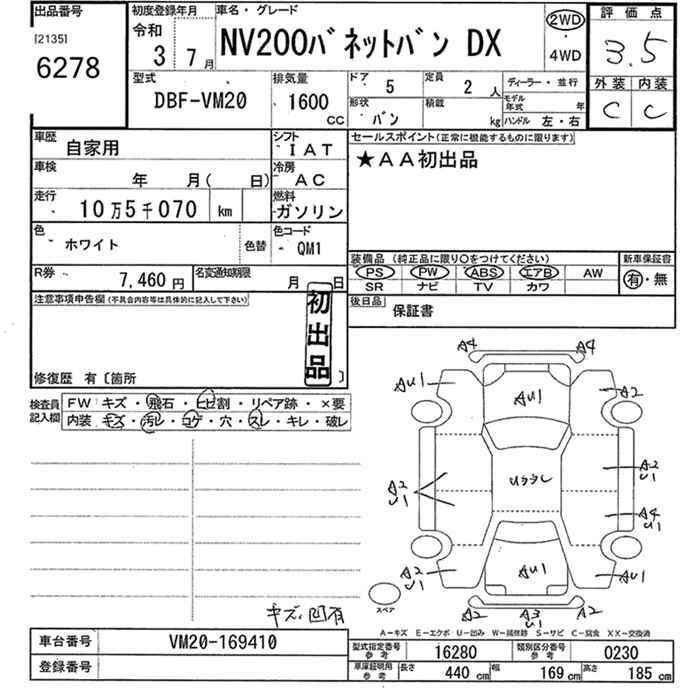 出品番号
[2135]
6278
初度登録年月
令和
3年 7月
車名・グレード
NV200バネットバン DX
2WD
・
4WD
評価点
3.5
外装 内装
C C
型式
DBF-VM20
排気量
1600
CC
ドア 5
定員 2人
形状 バン
積載 kg
ディーラー・並行
モデル年式 年
ハンドル 左・右
車歴 自家用
シフト IAT
車検 年 月( 日)
冷房 AC
走行 10万5千070 km
燃料 ガソリン
色 ホワイト
色替
色コード QM1
R券 7,460円
名変通知期限 月 日
セールスポイント(正常に機能するものに限ります)
★AA初出品
装備品(純正品に限り○をつけてください)
PS PW ABS エアB AW
SR ナビ TV カワ
新車保証書
有・無
後日品 保証書
注意事項申告欄(不具合内容等は具体的に記入して下さい)
初出品
修復歴 有〔箇所 〕
検査員記入欄
FW: キズ・飛石・ヒビ割・リペア跡・×要
内装: キズ・汚レ・コゲ・穴・スレ・キレ・破レ
A4 A4
AU1 AU1 A2
A2 U1
Uララレ
A2
U1
A4
U1
A2
U1
AU1
AU1
スペア
A2
A3
U1
A2
キズ、凹有
A-キズ E-エクボ U-凹み W-補修跡 S-サビ C-腐食 XX-交換済
車台番号 VM20-169410
登録番号
型式指定番号 参考 16280
類別区分番号 参考 0230
車庫証明用 参考 長さ 440cm 幅 169cm 高さ 185cm